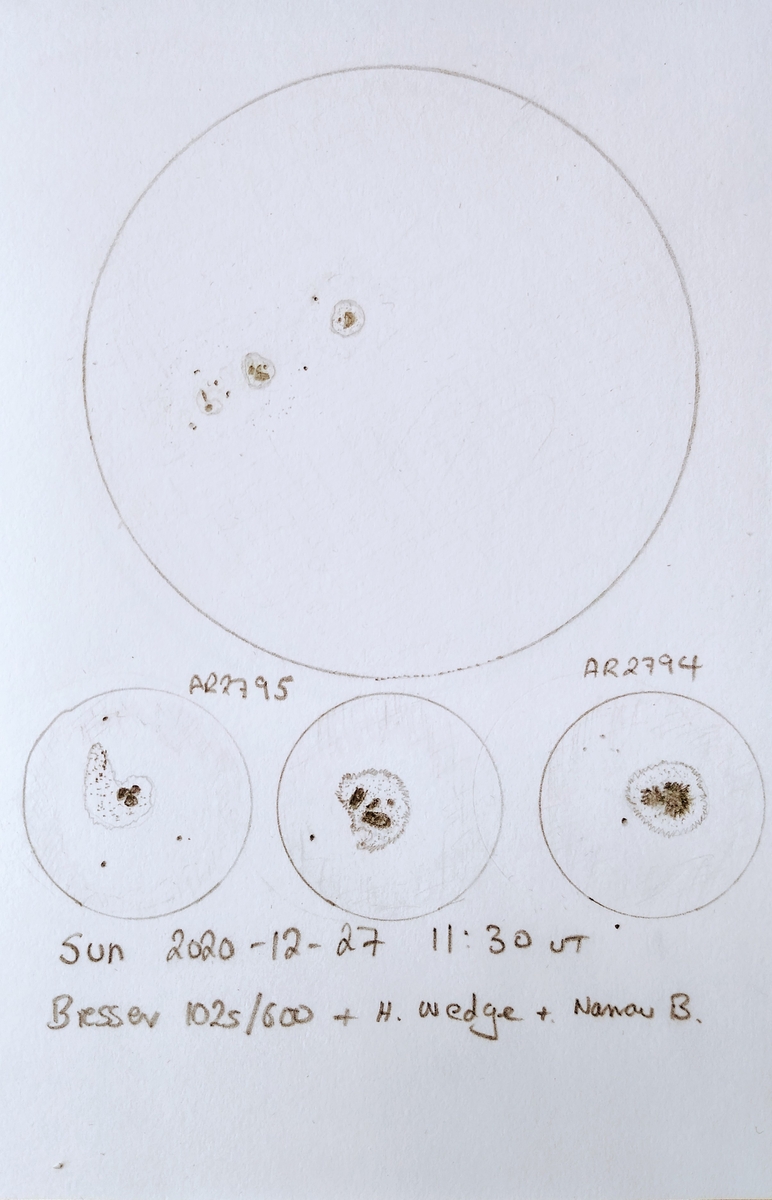 AR2794
AR2795
Sun 2020-12-27 11:30 UT
Bresser 102s/600 + H. Wedge + Narrow B.